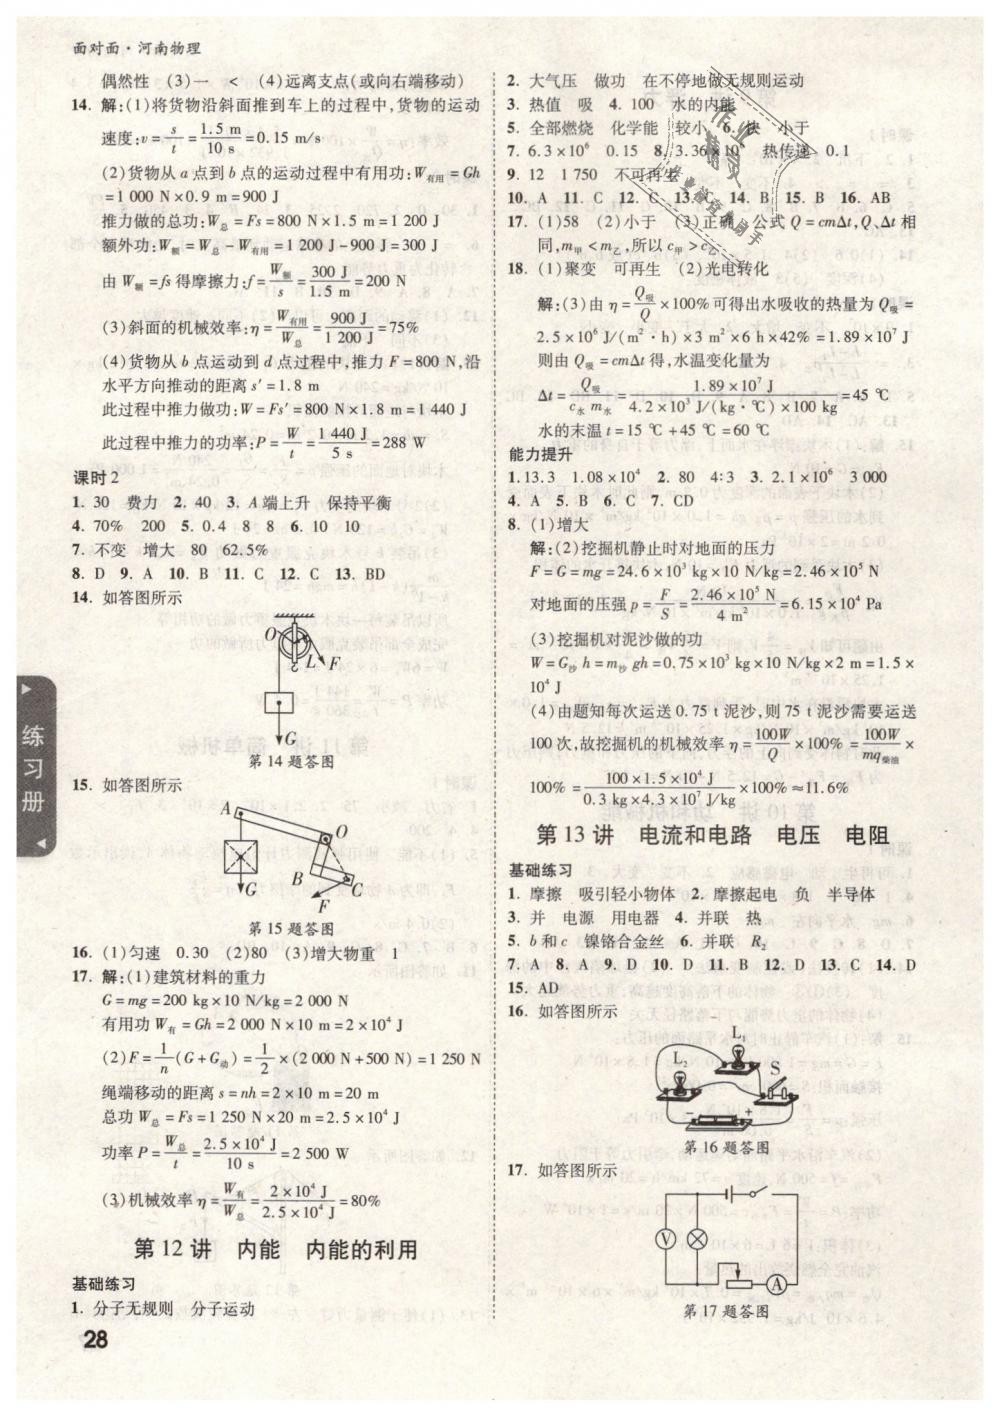 面对面·河南物理
偶然性 (3)一 < (4)远离支点(或向右端移动)
14. 解:(1)将货物沿斜面推到车上的过程中,货物的运动
速度:v = s/t = 1.5 m/10 s = 0.15 m/s
(2)货物从 a 点到 b 点的运动过程中有用功:W有用 = Gh
= 1 000 N×0.9 m = 900 J
推力做的总功:W总 = Fs = 800 N×1.5 m = 1 200 J
额外功:W额 = W总 - W有用 = 1 200 J - 900 J = 300 J
由 W额 = fs 得摩擦力:f = W额/s = 300 J/1.5 m = 200 N
(3)斜面的机械效率:η = W有用/W总 = 900 J/1 200 J = 75%
(4)货物从 b 点运动到 d 点过程中,推力 F = 800 N,沿
水平方向推动的距离 s′ = 1.8 m
此过程中推力做功:W = Fs′ = 800 N×1.8 m = 1 440 J
此过程中推力的功率:P = W/t = 1 440 J/5 s = 288 W
课时 2
1. 30 费力 2. 40 3. A 端上升 保持平衡
4. 70% 200 5. 0.4 8 8 6. 10 10
7. 不变 增大 80 62.5%
8. D 9. A 10. B 11. C 12. C 13. BD
14. 如答图所示
O L F
G
第 14 题答图
15. 如答图所示
A O
B C
G F
第 15 题答图
16. (1)匀速 0.30 (2)80 (3)增大物重 1
17. 解:(1)建筑材料的重力
G = mg = 200 kg×10 N/kg = 2 000 N
有用功 W有 = Gh = 2 000 N×10 m = 2×10⁴ J
(2)F = 1/n (G + G动) = 1/2 ×(2 000 N + 500 N) = 1 250 N
绳端移动的距离 s = nh = 2×10 m = 20 m
总功 W总 = Fs = 1 250 N×20 m = 2.5×10⁴ J
功率 P = W总/t = 2.5×10⁴ J/10 s = 2 500 W
(3)机械效率 η = W有/W总 = 2×10⁴ J/2.5×10⁴ J = 80%
第 12 讲 内能 内能的利用
基础练习
1. 分子无规则 分子运动
28
练习册
2. 大气压 做功 在不停地做无规则运动
3. 热值 吸 4. 100 水的内能
5. 全部燃烧 化学能 较小 6. 快 小于
7. 6.3×10⁶ 0.15 8. 3.36×10⁵ 热传递 0.1
9. 12 1 750 不可再生
10. A 11. C 12. C 13. C 14. B 15. B 16. AB
17. (1)58 (2)小于 (3)正确 公式 Q = cmΔt,Q、Δt 相
同,m甲 < m乙,所以 c甲 > c乙
18. (1)聚变 可再生 (2)光电转化
解:(3)由 η = Q吸/Q ×100% 可得出水吸收的热量为 Q吸 =
2.5×10⁶ J/(m²·h)×3 m²×6 h×42% = 1.89×10⁷ J
则由 Q吸 = cmΔt 得,水温变化量为
Δt = Q吸/c水 m水 = 1.89×10⁷ J/4.2×10³ J/(kg·℃)×100 kg = 45 ℃
水的末温 t = 15 ℃ + 45 ℃ = 60 ℃
能力提升
1. 13.3 1.08×10⁴ 2. 80 4∶3 3. 2.1×10⁶ 3 000
4. A 5. B 6. C 7. CD
8. (1)增大
解:(2)挖掘机静止时对地面的压力
F = G = mg = 24.6×10³ kg×10 N/kg = 2.46×10⁵ N
对地面的压强 p = F/S = 2.46×10⁵ N/4 m² = 6.15×10⁴ Pa
(3)挖掘机对泥沙做的功
W = G沙 h = m沙 gh = 0.75×10³ kg×10 N/kg×2 m = 1.5×
10⁴ J
(4)由题知每次运送 0.75 t 泥沙,则 75 t 泥沙需要运送
100 次,故挖掘机的机械效率 η = 100W/Q ×100% = 100W/mq柴油 ×
100% = 100×1.5×10⁴ J/0.3 kg×4.3×10⁷ J/kg ×100% ≈ 11.6%
第 13 讲 电流和电路 电压 电阻
基础练习
1. 摩擦 吸引轻小物体 2. 摩擦起电 负 半导体
3. 并 电源 用电器 4. 并联 热
5. b 和 c 镍铬合金丝 6. 并联 R₂
7. A 8. A 9. D 10. D 11. B 12. D 13. C 14. D
15. AD
16. 如答图所示
L₁
L₂ S
- +
第 16 题答图
17. 如答图所示
V A
第 17 题答图